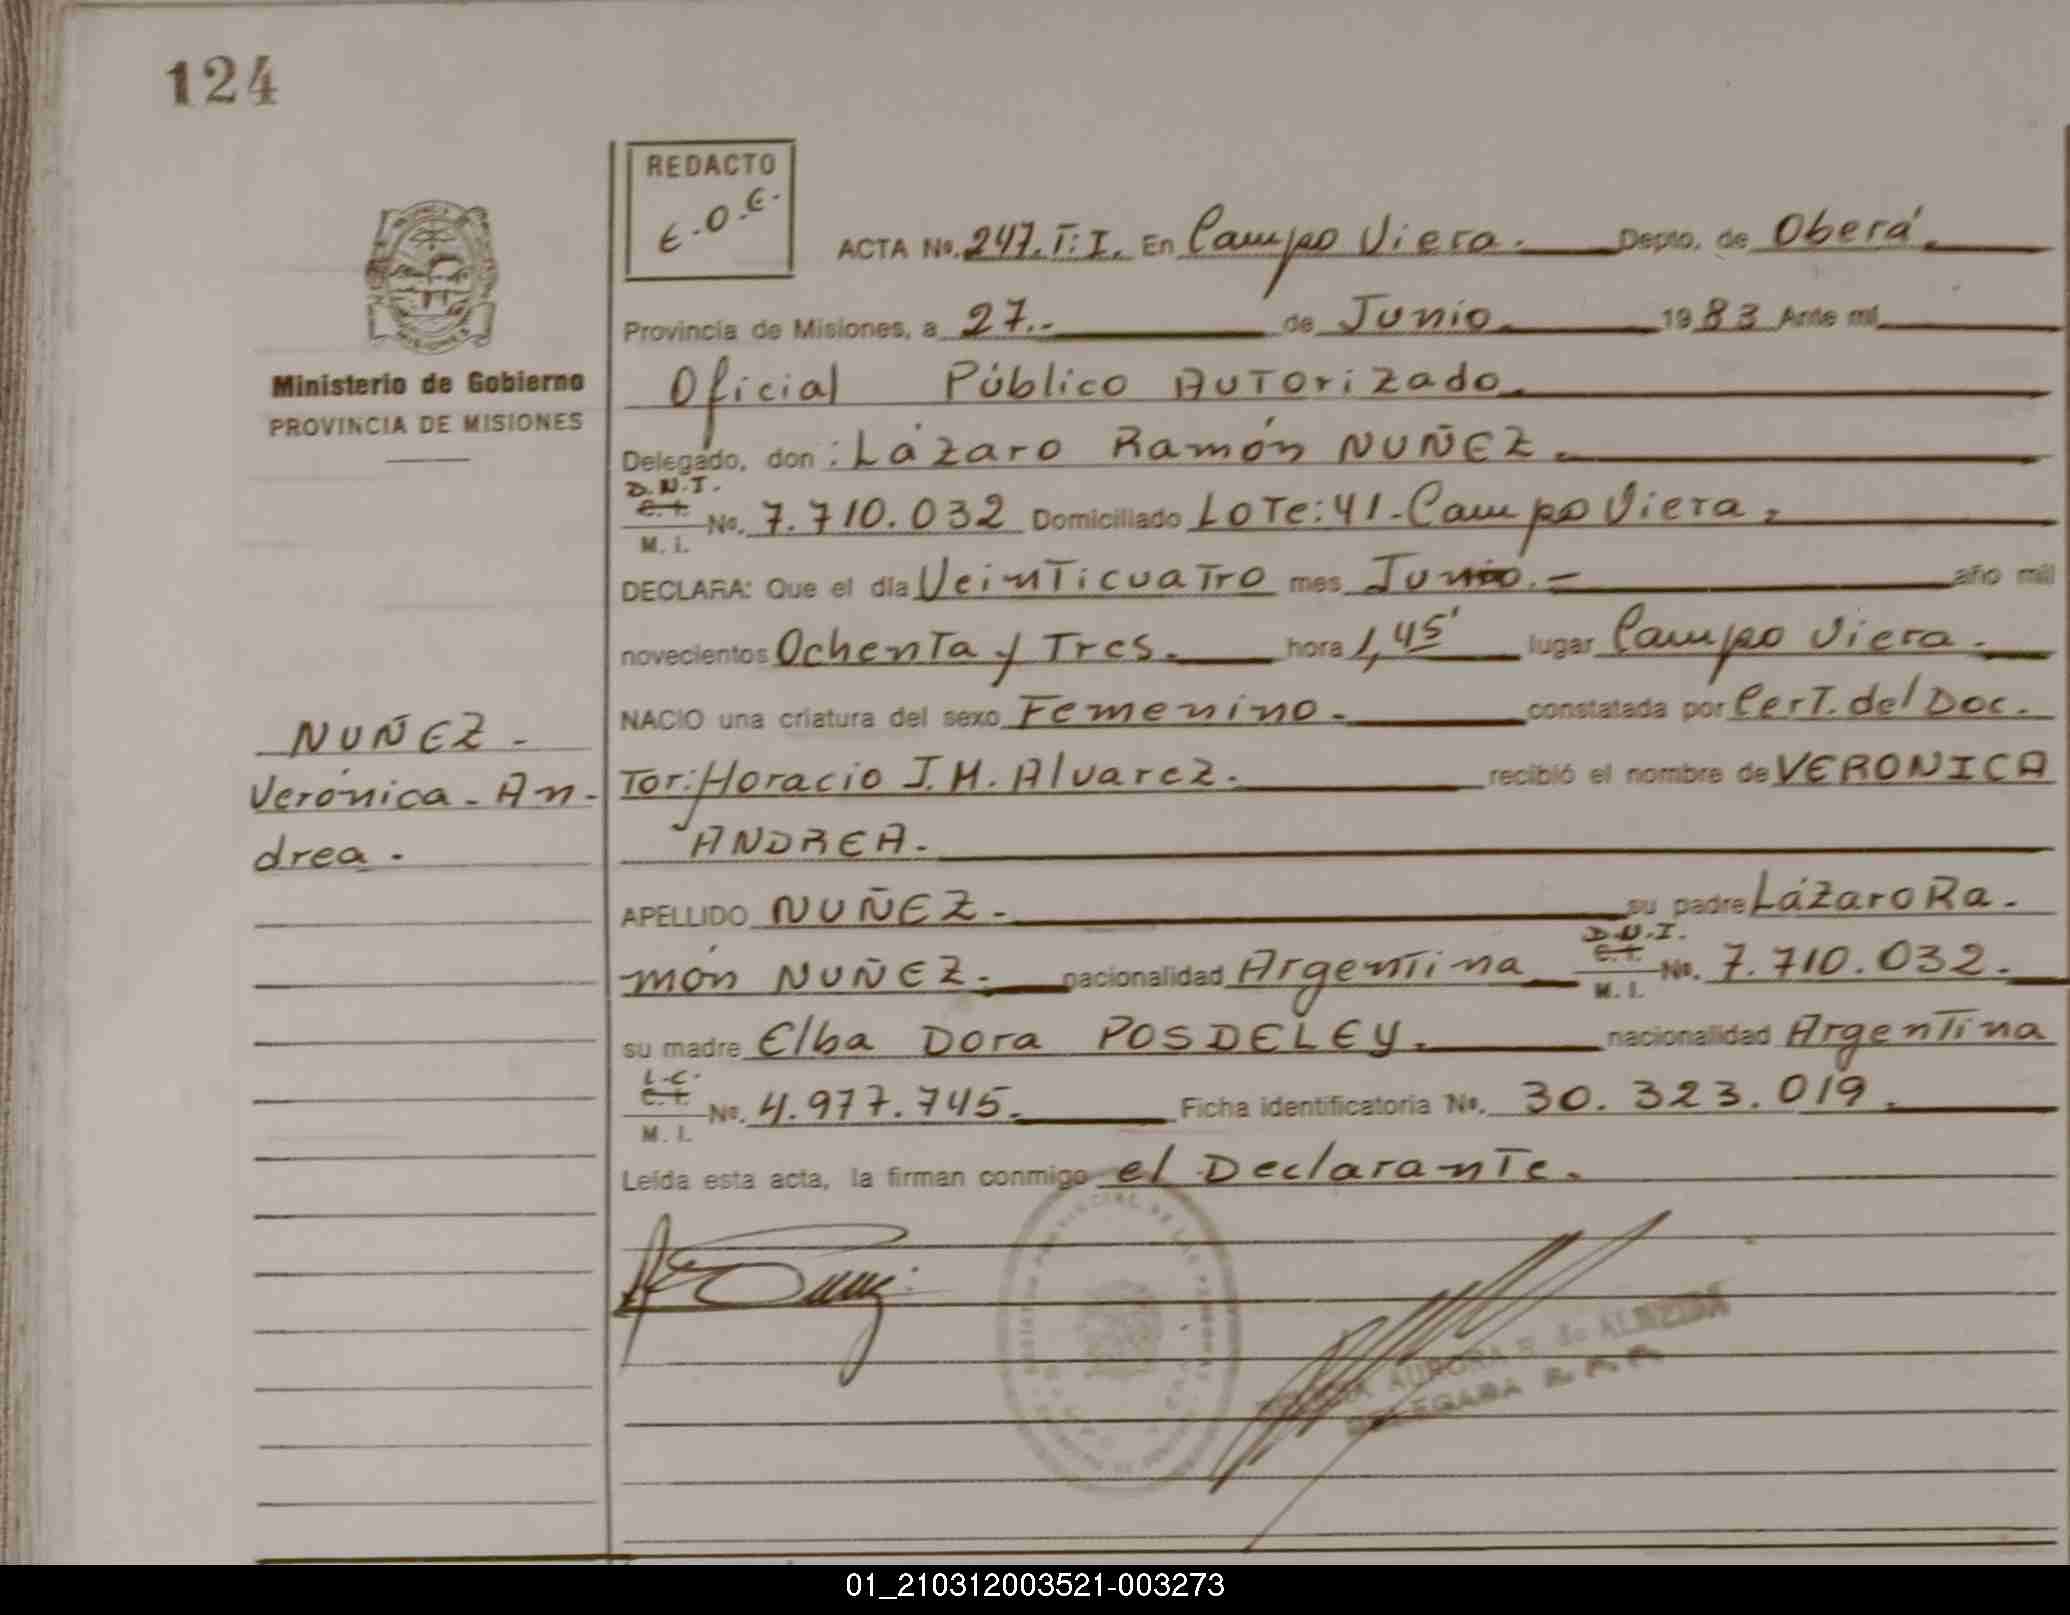 124
REDACTO
E.O.E.
ACTA No. 247. T: I. En Campo Viera. Depto. de Oberá.
Provincia de Misiones, a 27.- de Junio 1983 Ante mí
Ministerio de Gobierno
PROVINCIA DE MISIONES
Oficial Público Autorizado.
Delegado, don: Lázaro Ramón NUÑEZ.
D.N.I.
C.I.
M. I. No. 7.710.032 Domiciliado Lote: 41-Campo Viera.
DECLARA: Que el día Veinticuatro mes Junio.- año mil
novecientos Ochenta y Tres. hora 1,45' lugar Campo Viera.
NACIO una criatura del sexo Femenino. constatada por Cert. del Doc.
NUÑEZ -
Verónica - An-
drea.
tor: Horacio J.M. Alvarez. recibió el nombre de VERONICA
ANDREA.
APELLIDO NUÑEZ. su padre Lázaro Ra.
D.N.I.
C.I.
M. I.
món NUÑEZ. nacionalidad Argentina No. 7.710.032.
su madre Elba Dora POSDELEY. nacionalidad Argentina
L.C.
C.I.
M. I. No. 4.977.745. Ficha identificatoria No. 30.323.019.
Leída esta acta, la firman conmigo el Declarante.
AURORA de ALMEIDA
DELEGADA
01_210312003521-003273